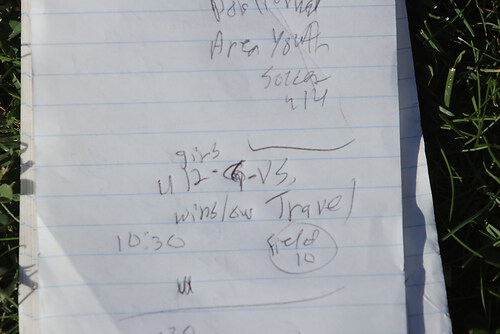 Area Youth
Soccer
u14
girls
u12-G-vs.
winslow Travel
10:30
Field
10